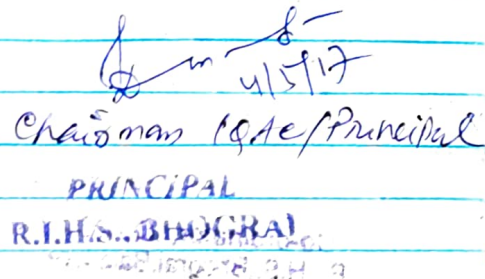 4/5/17
Chairman IQAC/Principal
PRINCIPAL
R.I.H.S., BHOGRAI